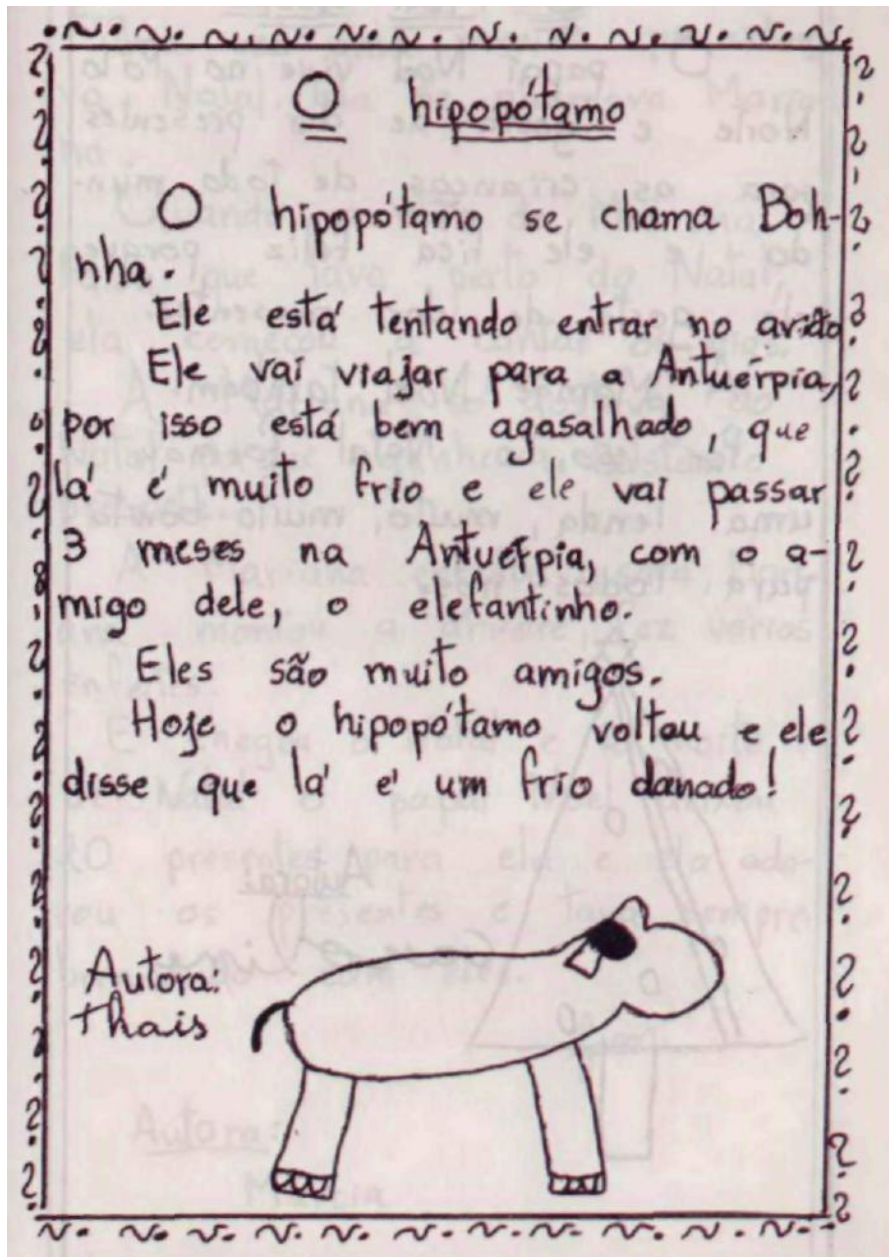 O hipopótamo
O hipopótamo se chama Boh-
nha.
Ele está tentando entrar no avião
Ele vai viajar para a Antuérpia,
por isso está bem agasalhado, que
lá é muito frio e ele vai passar
3 meses na Antuérpia, com o a-
migo dele, o elefantinho.
Eles são muito amigos.
Hoje o hipopótamo voltou e ele
disse que lá é um frio danado!
Autora:
Thais